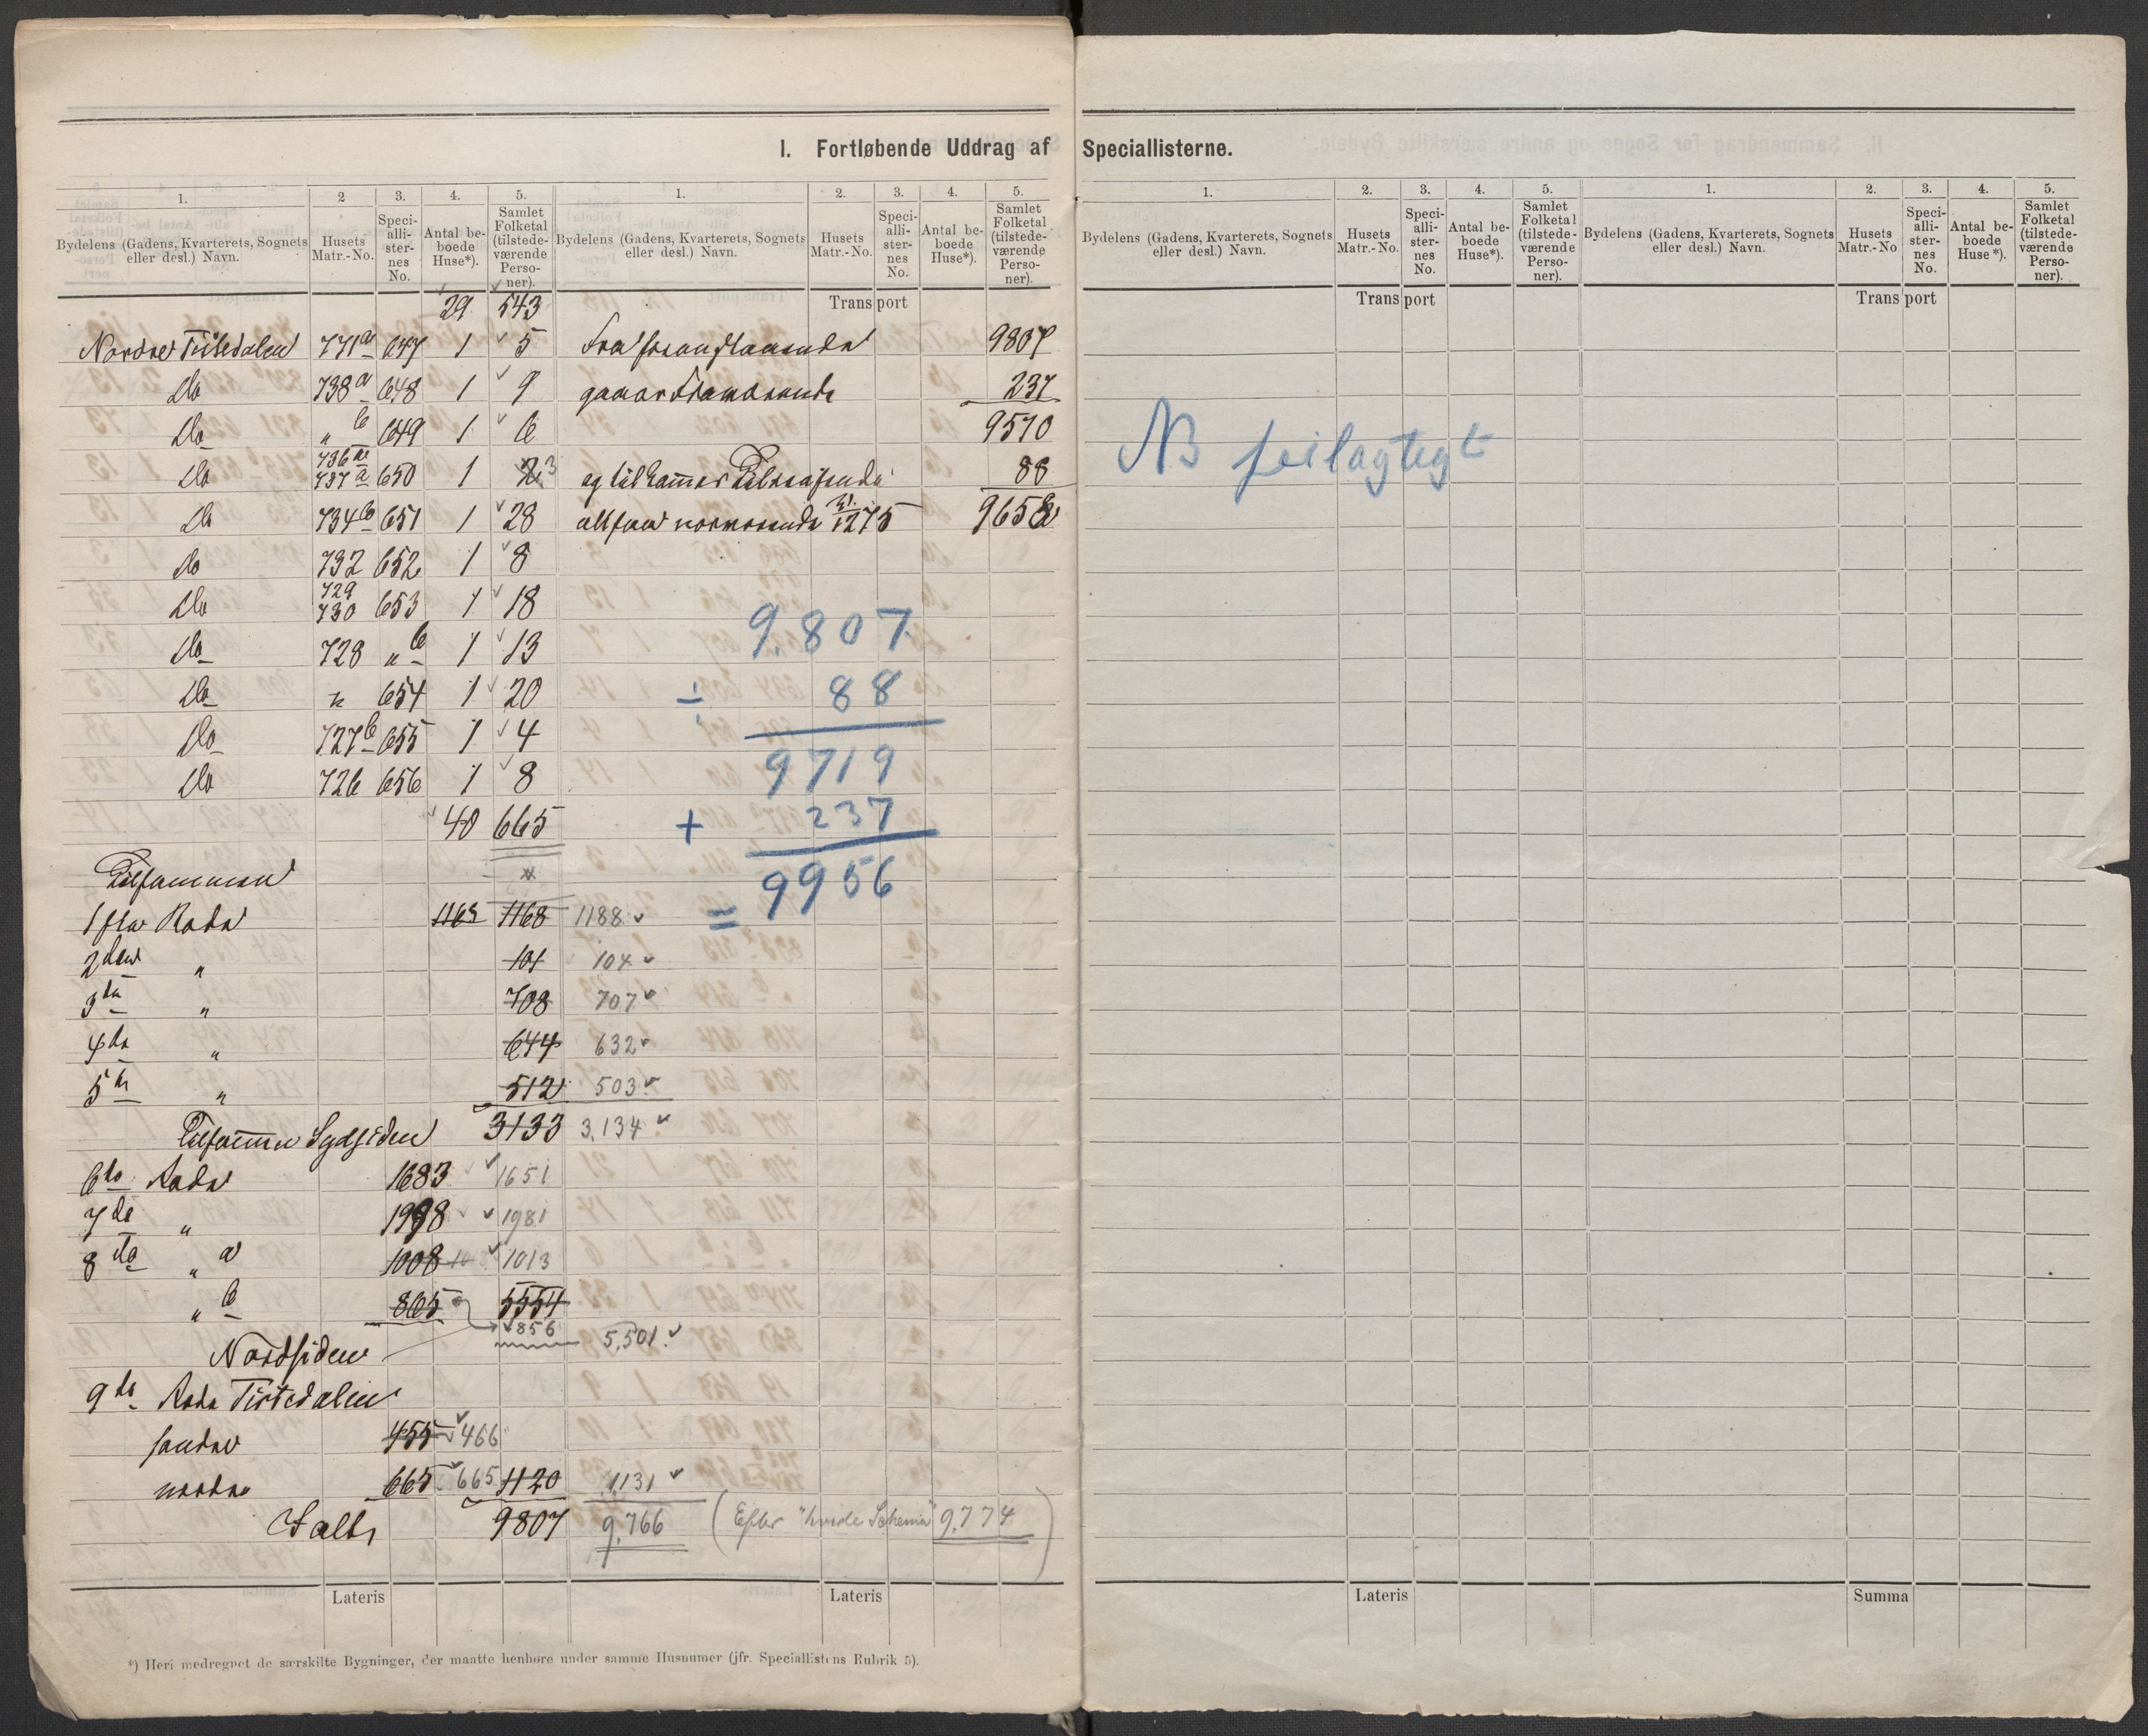 I. Fortløbende Uddrag af Speciallisterne.
1. 2 3. 4. 5.
Bydelens (Gadens, Kvarterets, Sognets eller desl.) Navn. Husets Matr.-No. Speci-alli-ster-nes No. Antal be-boede Huse*). Samlet Folketal (tilstede-værende Perso-ner).
29 543
Nordre Tistedalen 771a 647 1 5
Do 738a 648 1 9
Do " b 649 1 6
Do 736 737a 650 1 23
Do 734b 651 1 28
Do 732 652 1 8
Do 729 730 653 1 18
Do 728 " b 1 13
Do " 654 1 20
Do 727b 655 1 4
Do 726 656 1 8
40 665
Tilsammen
1ste Rode 1168 1168 1188
2den " 101 104
3die " 708 707
4de " 644 632
5te " 512 503
Tilsammen Sydsiden 3133 3,134
6te Rode 1683 1651
7de " 1998 1981
8de " a 1008 1013
" b 865 5554
856 5,501
Nordsiden
9de Rode Tistedalen
søndre 455 466
nordre 665 665 1120 1,131
9807 9,766 (Efter "hvide Schema" 9,774)
Lateris
*) Heri medregnet de særskilte Bygninger, der maatte henhøre under samme Husnumer (jfr. Speciallistens Rubrik 5).
1. 2. 3. 4. 5.
Bydelens (Gadens, Kvarterets, Sognets eller desl.) Navn. Husets Matr.-No. Speci-alli-ster-nes No. Antal be-boede Huse*). Samlet Folketal (tilstede-værende Perso-ner).
Transport
9807
237
9570
og tilkommer 88
1275 9658
9.807
÷ 88
9719
+ 237
= 9956
Lateris
1. 2. 3. 4. 5.
Bydelens (Gadens, Kvarterets, Sognets eller desl.) Navn. Husets Matr.-No. Speci-alli-ster-nes No. Antal be-boede Huse*). Samlet Folketal (tilstede-værende Perso-ner).
Transport
NB feilagtigt
Lateris
1. 2. 3. 4. 5.
Bydelens (Gadens, Kvarterets, Sognets eller desl.) Navn. Husets Matr.-No Speci-alli-ster-nes No. Antal be-boede Huse*). Samlet Folketal (tilstede-værende Perso-ner).
Transport
Summa